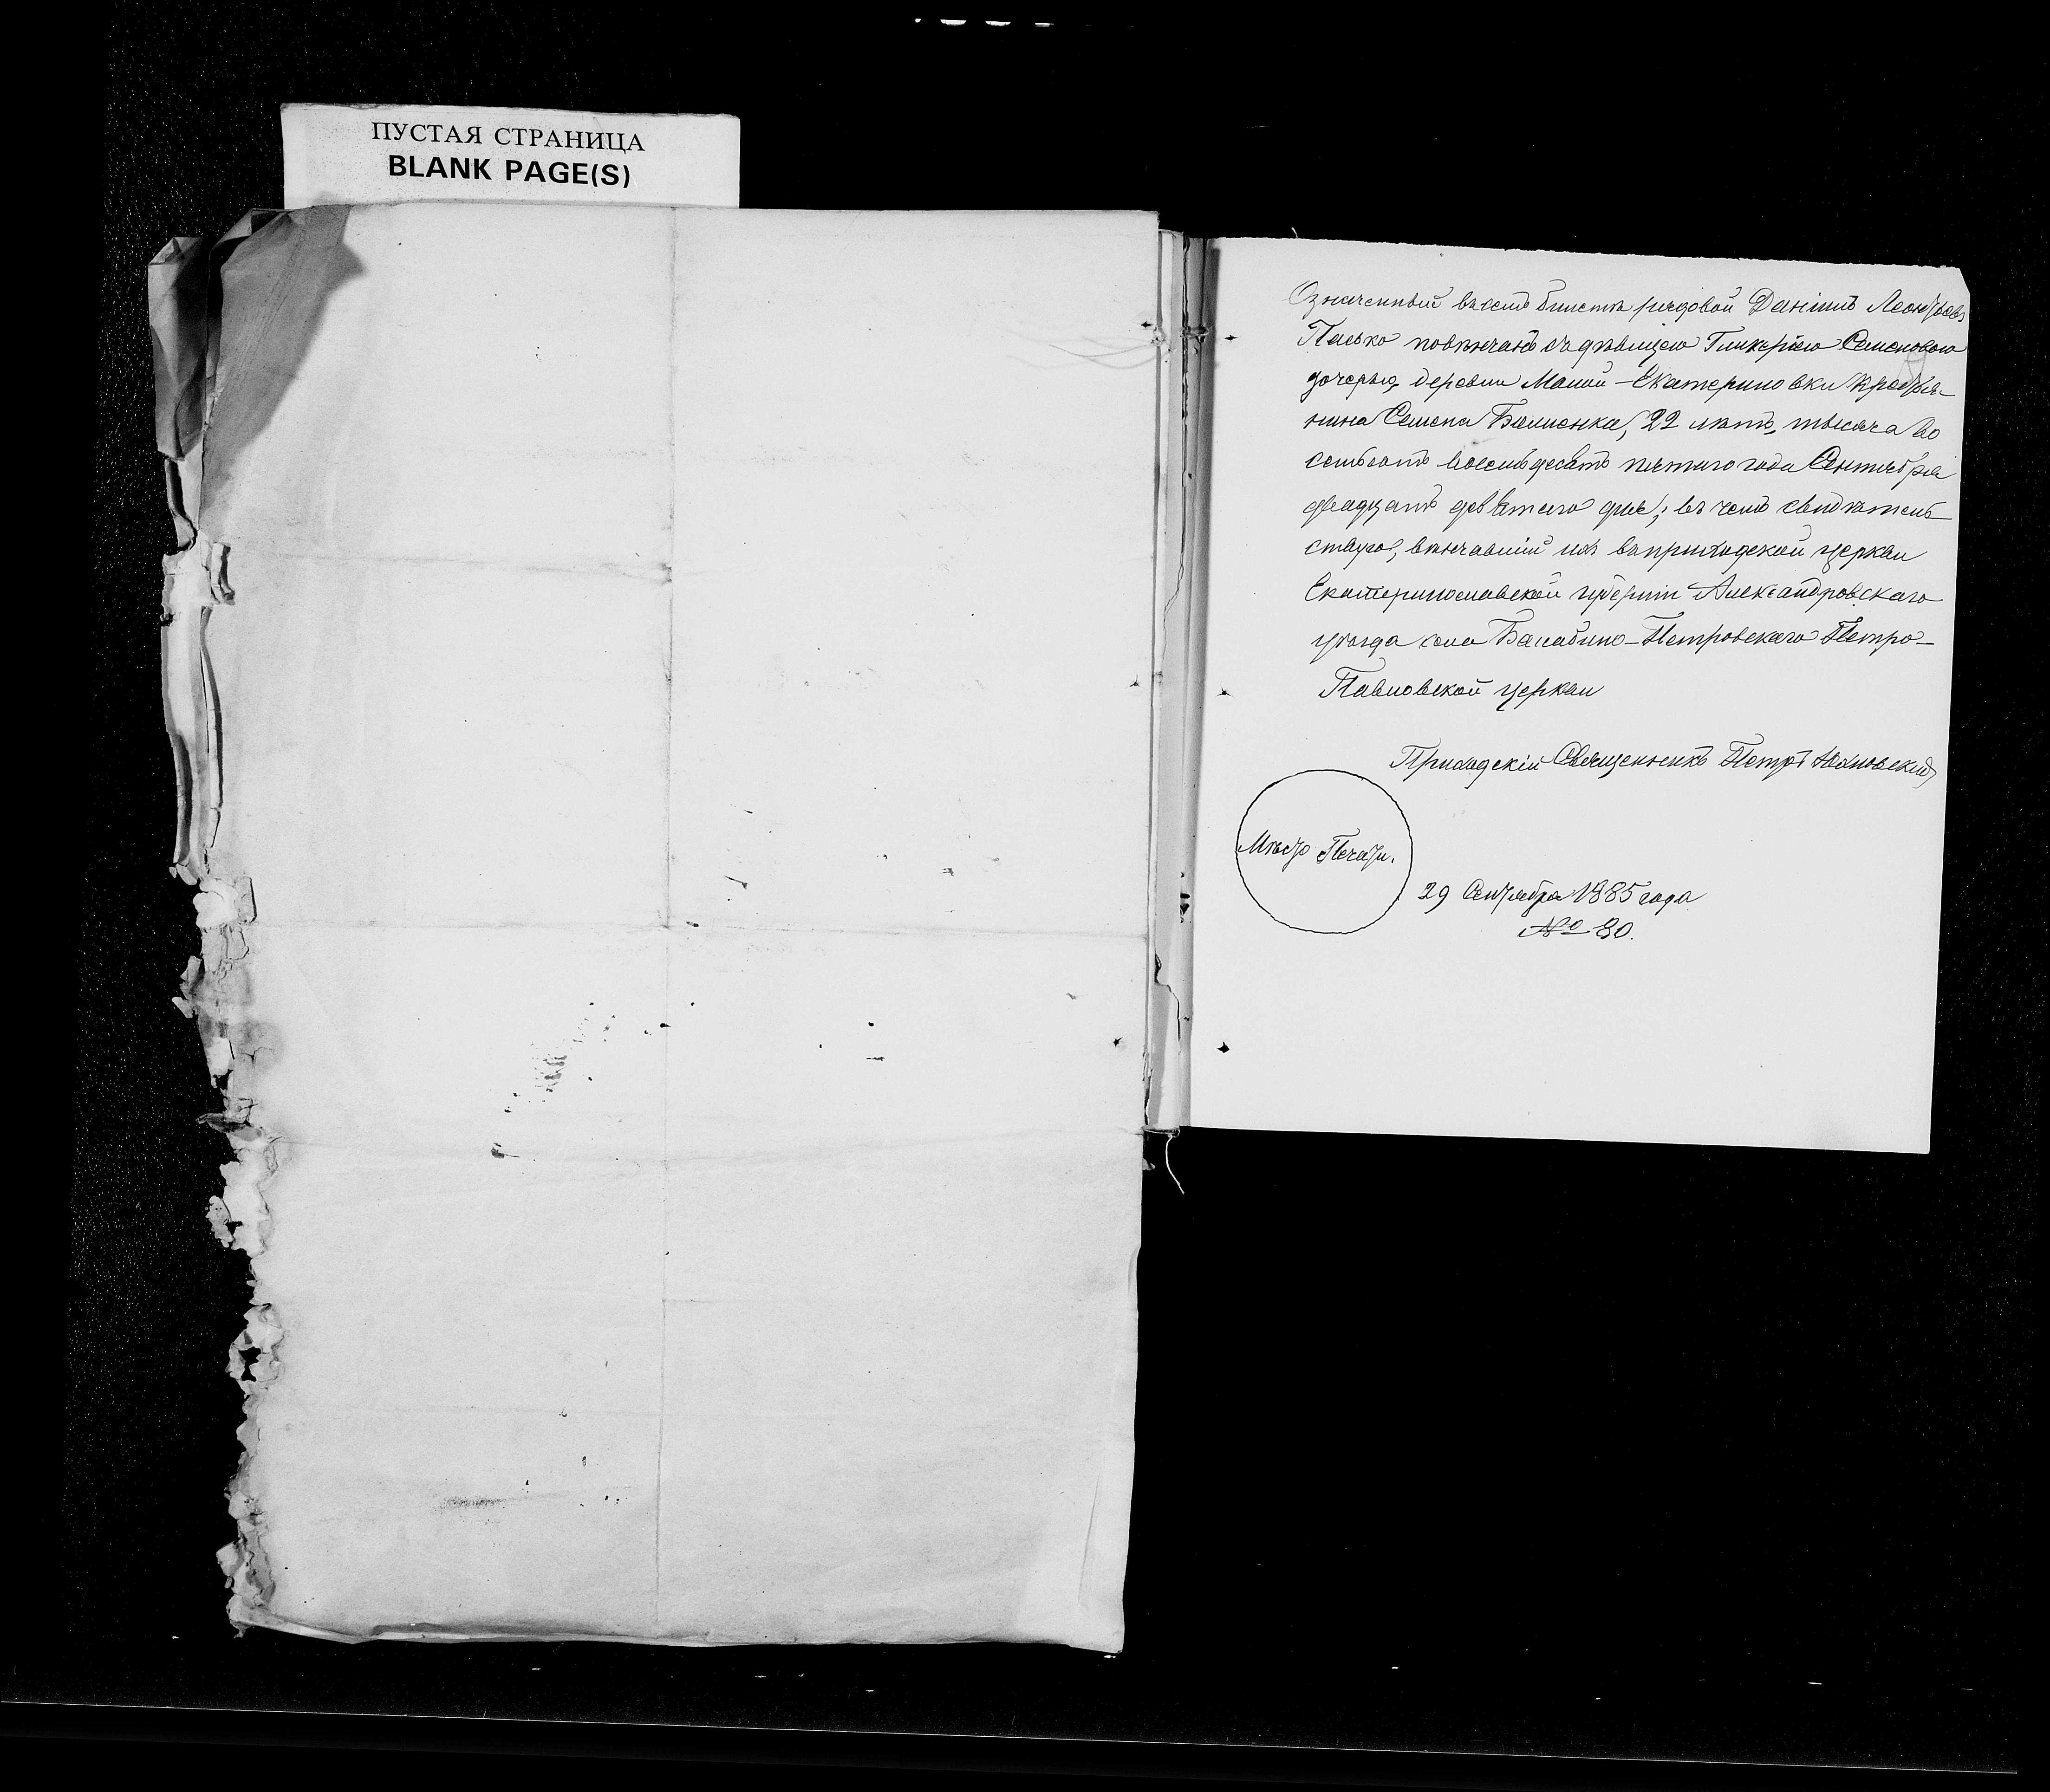 ПУСТАЯ СТРАНИЦА
BLANK PAGE(S)
Означенный въ семъ билетѣ рядовой Даніилъ Леонтьевъ
Палько повѣнчанъ съ дѣвицею Гликеріею Семеновою
дочерью, деревни Малой-Екатериновки крестья-
нина Семена 22 лѣтъ, тысяча во
семьсотъ восемьдесятъ пятаго года Сентября
двадцать девятаго дня; въ чемъ свидѣтель
ствую, вѣнчавшій ихъ въ приходской церкви
Екатеринославской губерніи Александровскаго
уѣзда села Балабино-Петровскаго Петро-
Павловской церкви
Приходскій Священникъ Петръ
Мѣсто Печати.
29 Сентября 1885 года
№ 80.